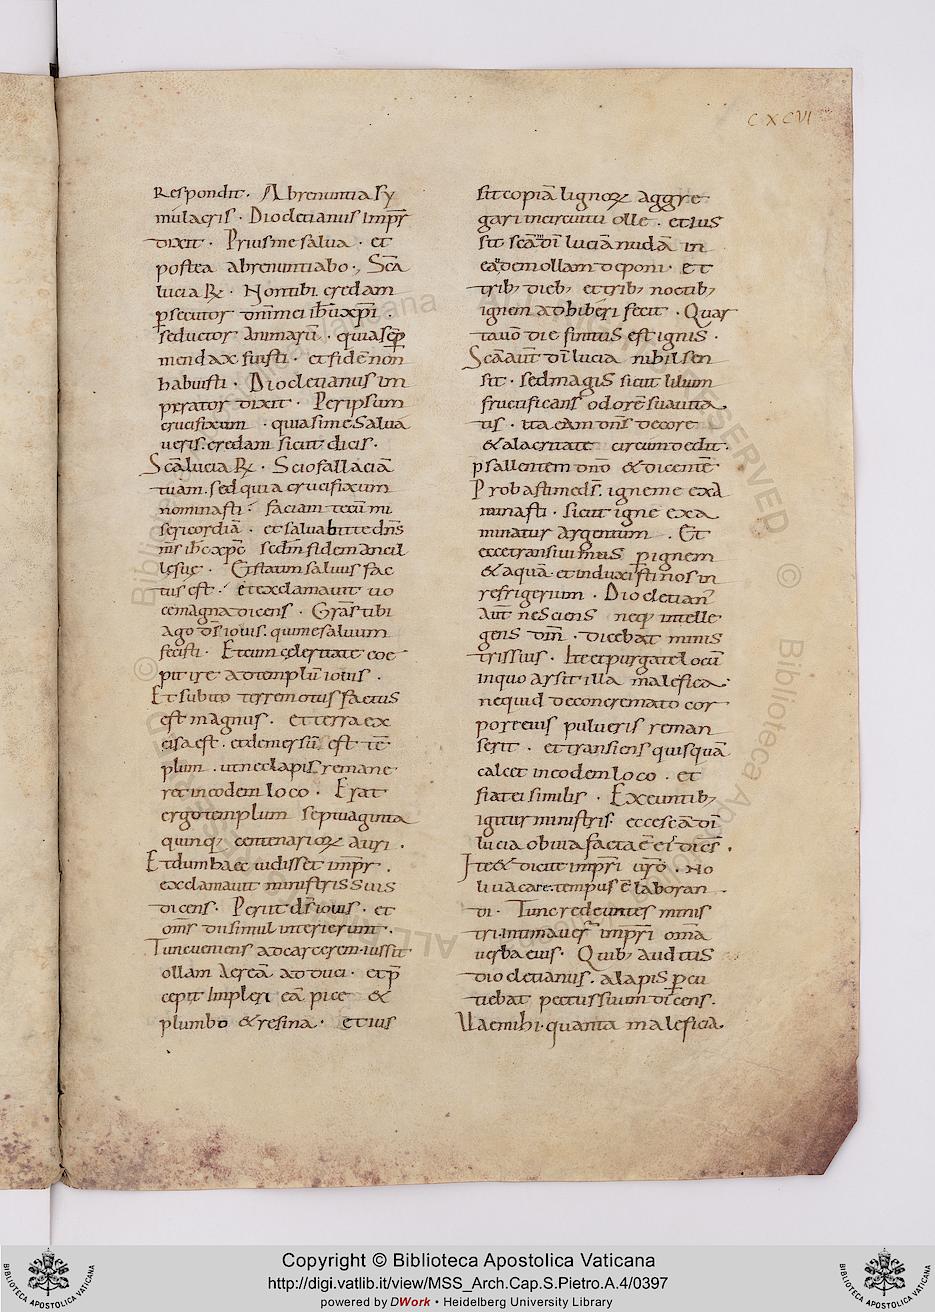 C X C VI
Respondit · Abrenuntia sy
mulacris · Dioclecianus imp̅r
dixit · Prius me salua · et
postea abrenuntiabo ·, Sc̅a
lucia R̷ · Non tibi credam
p̲secutor dn̅i mei ih̅u xp̅i ·
seductor animarū · quia sep̲
mendax fuisti · et fidē non
habuisti · Dioclecianus im
perator dixit · Per ipsum
crucifixum · quia si me salua
ueris · credam sicut dicis ·
Sc̅a lucia R̷ · Scio fallaciā
tuam · sed quia crucifixum
nominasti · faciam tecū mi
sericordiā · et saluabit te dn̅s
n̅r ih̅c xp̅c sedm̅ fidem ancil
lesuę · Et statum saluus fac
tus est · et exclamauit uo
ce magna dicens · Gra̅s tibi
ago d̅s iouis · qui me saluum
fecisti · Et cum celeritate coe
pit ire ad templū iouis ·
Et subito terremotus factus
est magnus · et terra ex
cisa est · et demersū est tē
plum · ut nec lapis remane
ret in eodem loco · Erat
ergo templum septuaginta
quinq; centenarioꝝ auri ·
Et dum haec uidisset imp̅r ·
exclamauit ministris suis
dicens · Periit d̅s iouis · et
om̅s dii simul interierunt ·
Tunc ueniens ad carcerem · iussit
ollam aereā adduci · et p̲
cepit impleri eā pice &
plumbo & resina · et ius
sit copiā lignoꝝ aggre
gari in circuitu olle · et ius
sit sc̅ā di̅ luciā nudā in
eadem ollam deponi · et
trib; dieb; et trib; noctib;
ignem adhiberi fecit · Quar
tauō die finitus est ignis ·
Sc̅a aut̅ di̅ lucia nihil sen
sit · sed magis sicut lilium
fructificans odorē suauita
tis · ita eam om̅s decore
& alacritate circumdedit ·
psallentem dn̅o & dicentē
Probasti me d̅s · igne me exa
minasti · sicut igne exa
minatur argentum · Et
ecce transiuimus p̲ ignem
& aquā · et induxisti nos in
refrigerium · Dioclecian̕
aut̅ nesciens neq; intelle
gens dm̅ · dicebat minis
tris suis · Ite et purgate locū
in quo arsit illa malefica
ne quid de concremato cor
pore eius pulueris reman
serit · et transiens quisquā
calcet in eodem loco · et
fiat ei similis · Exeuntib;
igitur ministris · ecce sc̅a di̅
lucia obuia facta ē eis dicēs ·
Ite & dicite imp̅ri uro̅ · No
li uacare · tempus ē laboran
di · Tunc redeuntes minis
tri · intimauer̅ imp̅ri om̅a
uerba eius · Quib; auditis
dioclecianus · alapis p̲cu
tiebat pectus suum dicens ·
Uae mihi · quanta maleficia ·
© Biblioteca Apostolica Vaticana
ALL RIGHTS RESERVED
Copyright © Biblioteca Apostolica Vaticana
http://digi.vatlib.it/view/MSS_Arch.Cap.S.Pietro.A.4/0397
powered by DWork • Heidelberg University Library
BIBLIOTECA APOSTOLICA VATICANA
BIBLIOTECA APOSTOLICA VATICANA